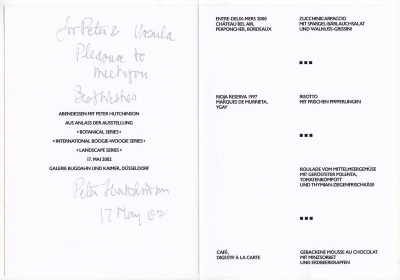 for Peter & Ursula
Pleasure to
meet you
Best wishes
ABENDESSEN MIT PETER HUTCHINSON
AUS ANLASS DER AUSSTELLUNG
»BOTANICAL SERIES«
»INTERNATIONAL BOOGIE-WOOGIE SERIES«
»LANDSCAPE SERIES«
17. MAI 2002
GALERIE BUGDAHN UND KAIMER, DÜSSELDORF
Peter Hutchinson
17 May 02
ENTRE-DEUX-MERS 2000
CHÂTEAU BEL AIR,
PERPONCHER, BORDEAUX
ZUCCHINICARPACCIO
MIT SPARGEL-BÄRLAUCHSALAT
UND WALNUSS-GRISSINI
RIOJA RESERVA 1997
MARQUES DE MURRIETA,
YGAY
RISOTTO
MIT FRISCHEN PFIFFERLINGEN
ROULADE VOM MITTELMEERGEMÜSE
MIT GERÖSTETER POLENTA,
TOMATENKOMPOTT
UND THYMIAN-ZIEGENFRISCHKÄSE
CAFÉ,
DIGESTIF À LA CARTE
GEBACKENE MOUSSE AU CHOCOLAT
MIT MINZSORBET
UND ERDBEERKRAPFEN